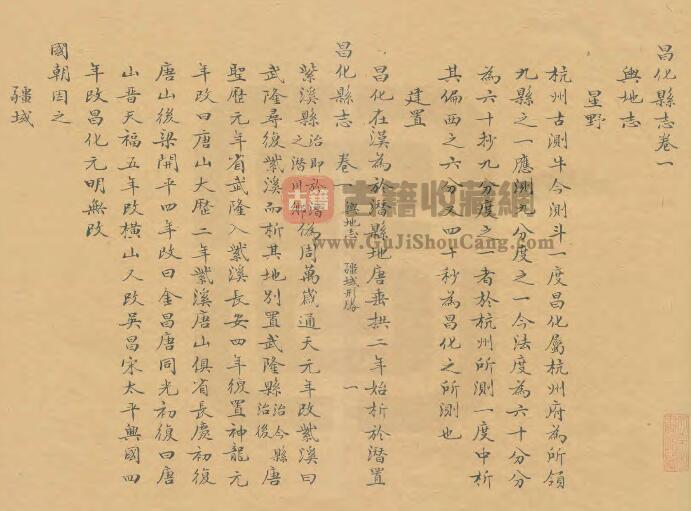 昌化縣志卷一
輿地志
星野
杭州古測牛今測斗一度昌化屬杭州府為所領
九縣之一應測九分度之一今法度為六十分分
為六十秒九分度之一者於杭州所測一度中析
其偏西之六分又四十秒為昌化之所測也
建置
昌化在漢為於潛縣地唐垂拱二年始析於潛置
昌化縣志 卷一 輿地志 疆域形勝 一
紫溪縣治即於潛之潛川鄉偽周萬歲通天元年改紫溪曰
武隆尋復紫溪而析其地別置武隆縣治今縣治後唐
聖歷元年省武隆入紫溪長安四年復置神龍元
年改曰唐山大歷二年紫溪唐山俱省長慶初復
唐山後梁開平四年改曰金昌唐同光初復曰唐
山晉天福五年改橫山又改吳昌宋太平興國四
年改昌化元明無改
國朝因之
疆域
古籍
古籍收藏網
www.GuJiShouCang.com